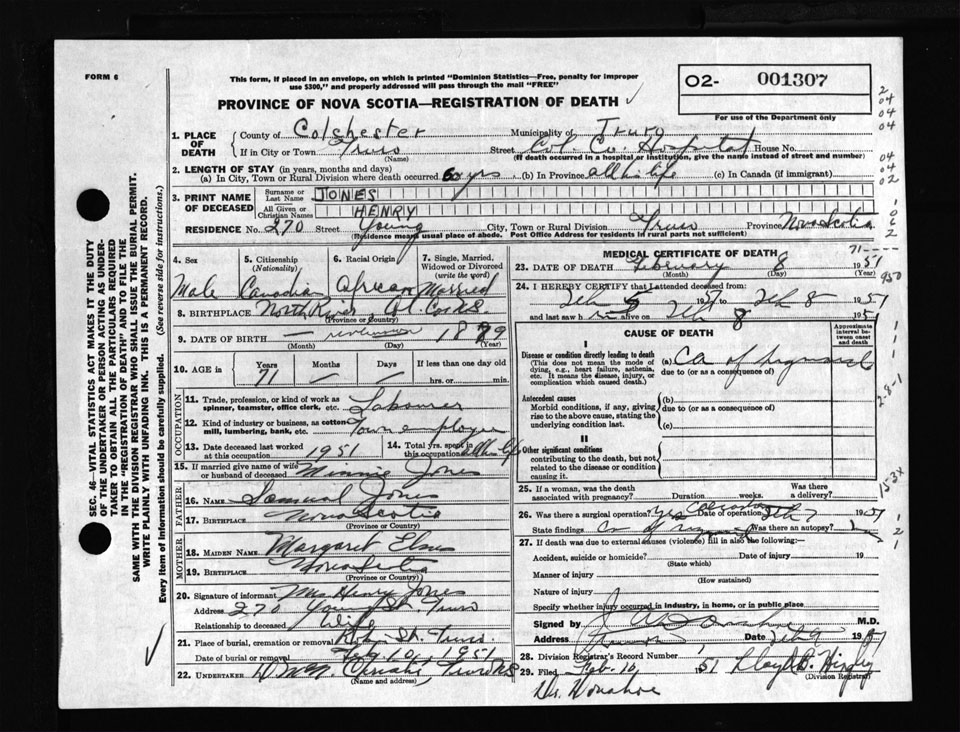 FORM 6
This form, if placed in an envelope, on which is printed "Dominion Statistics—Free, penalty for improper
use $300," and properly addressed will pass through the mail "FREE"
O2- 001307
For use of the Department only
PROVINCE OF NOVA SCOTIA—REGISTRATION OF DEATH
1. PLACE OF DEATH
County of Colchester Municipality of Truro
If in City or Town Truro Street Col. Co. Hospital House No.
(Name) (If death occurred in a hospital or institution, give the name instead of street and number)
2. LENGTH OF STAY (in years, months and days)
(a) In City, Town or Rural Division where death occurred 60 yrs (b) In Province all his life (c) In Canada (if immigrant)
3. PRINT NAME OF DECEASED
Surname or Last Name JONES
All Given or Christian Names HENRY
RESIDENCE No. 270 Street Young City, Town or Rural Division Truro Province Nova Scotia
(Residence means usual place of abode. Post Office Address for residents in rural parts not sufficient)
4. Sex 5. Citizenship (Nationality) 6. Racial Origin 7. Single, Married, Widowed or Divorced (write the word)
Male Canadian African Married
8. BIRTHPLACE North River, Col. Co. N.S.
(Province or Country)
9. DATE OF BIRTH unknown 1879
(Month) (Day) (Year)
10. AGE in Years Months Days If less than one day old
71 — — hrs. or min.
OCCUPATION
11. Trade, profession, or kind of work as spinner, teamster, office clerk, etc. Labourer
12. Kind of industry or business, as cotton mill, lumbering, bank, etc. Town employee
13. Date deceased last worked at this occupation 1951 14. Total yrs. spent in this occupation all his life
15. If married give name of wife or husband of deceased Minnie Jones
FATHER
16. NAME Samual Jones
17. BIRTHPLACE Nova Scotia
(Province or Country)
MOTHER
18. MAIDEN NAME Margaret
19. BIRTHPLACE Nova Scotia
(Province or Country)
20. Signature of informant Mrs Henry Jones
Address 270 Young St. Truro
Relationship to deceased Wife
21. Place of burial, cremation or removal St. Truro
Date of burial or removal Feb. 10, 1951
22. UNDERTAKER Truro N.S.
(Name and address)
MEDICAL CERTIFICATE OF DEATH
23. DATE OF DEATH February 8 1951
(Month) (Day) (Year)
24. I HEREBY CERTIFY that I attended deceased from:
Feb 5 1951 Feb 8 1951
and last saw h alive on Feb 8 1951
CAUSE OF DEATH
Approximate interval between onset and death
I
Disease or condition directly leading to death
(This does not mean the mode of dying, e.g., heart failure, asthenia, etc. It means the disease, injury, or complication which caused death.)
(a) Ca of
due to (or as a consequence of)
Antecedent causes
Morbid conditions, if any, giving rise to the above cause, stating the underlying condition last.
(b)
due to (or as a consequence of)
(c)
II
Other significant conditions
contributing to the death, but not related to the disease or condition causing it.
25. If a woman, was the death associated with pregnancy? Duration weeks. Was there a delivery?
26. Was there a surgical operation? yes Date of operation Feb 7 1951
State findings Ca of Was there an autopsy?
27. If death was due to external causes (violence) fill in also the following:
Accident, suicide or homicide? Date of injury 19
(State which)
Manner of injury
(How sustained)
Nature of injury
Specify whether injury occurred in industry, in home, or in public place
Signed by M.D.
Address Truro Date Feb 9 1951
28. Division Registrar's Record Number
29. Filed Feb. 10, 51 Lloyd B.
(Division Registrar)
Dr. Donahoe
SEC. 46—VITAL STATISTICS ACT MAKES IT THE DUTY
OF THE UNDERTAKER OR PERSON ACTING AS UNDER-
TAKER TO OBTAIN ALL THE PARTICULARS REQUIRED
IN THE "REGISTRATION OF DEATH" AND TO FILE THE
SAME WITH THE DIVISION REGISTRAR WHO SHALL ISSUE THE BURIAL PERMIT.
WRITE PLAINLY WITH UNFADING INK. THIS IS A PERMANENT RECORD.
Every item of information should be carefully supplied. (See reverse side for instructions.)